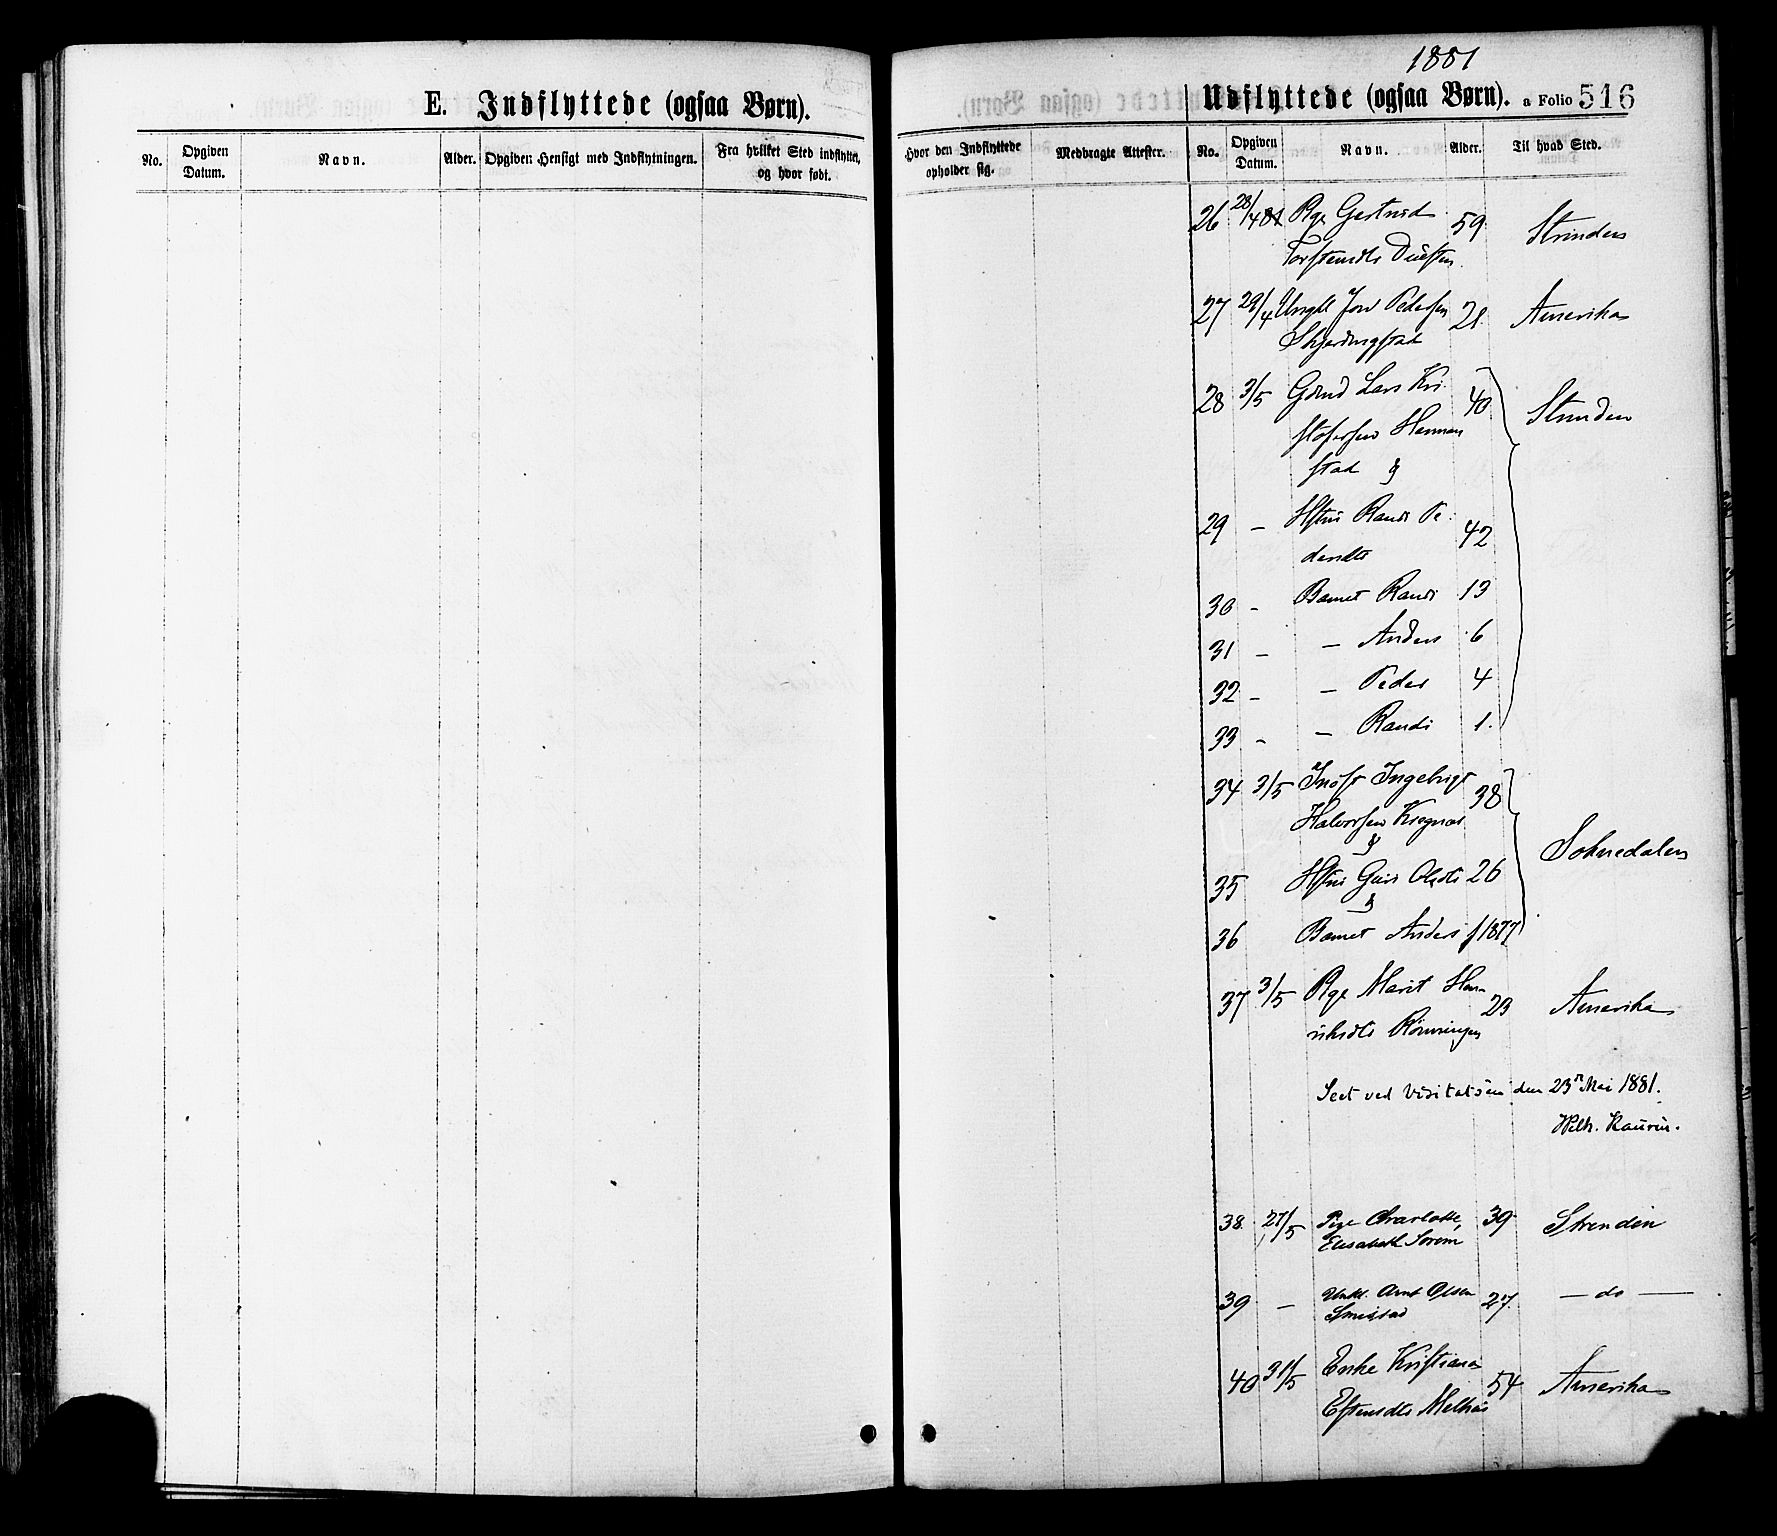 E. Indflyttede (ogsaa Børn).
No.
Opgiven Datum.
Navn.
Alder.
Opgiven Hensigt med Indflytningen.
Fra hvilket Sted indflyttet, og hvor født.
1881
Udflyttede (ogsaa Børn). a Folio 516
Hvor den Indflyttede opholder sig.
Medbragte Attester.
No.
Opgiven Datum.
Navn.
Alder.
Til hvad Sted.
26 28/4 81 Pige Gertrud 59 Strinden
Torstensdtr
27 29/4 Ungkl Jon Pedersen 21 Amerika
Skjerdingstad
28 3/5 Gdmd Lars Kri 40 Strinden
stofersen Hermen
stad &
29 - Hstru Randi Pe 42
dersdtr
30 - Barnet Randi 13
31 - - Anders 6
32 - - Peder 4
33 - - Randi 1.
34 3/5 Indst Ingebrigt 38 Soknedalen
Halvorsen
&
35 Hstru Guri Olsdtr 26
&
36 Barnet Anders f 1877
37 3/5 Pige Marit Hen 23 Amerika
riksdtr Rønningen
Seet ved Visitatsen den 23de Mai 1881.
Wilh. Kaurin.
38 27/5 Pige Charlotte 39 Strinden
Elisabeth
39 - Unkl. Arnt Olsen 27 - do -
40 31/5 Enke Kristiana 54 Amerika
Estensdtr Melhus